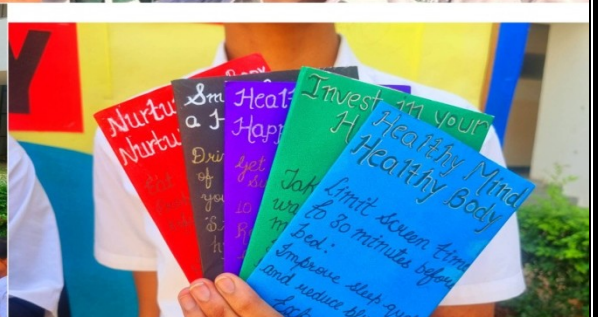 Y
Nurtu
Nurtu
Body
Sm
a H
Dri
of
you
Heal
Happ
Get
10
Invest in your
H
Tak
wa
m
Healthy Mind
Healthy Body
Limit screen time
to 30 minutes before
bed:
Improve sleep qua
and reduce